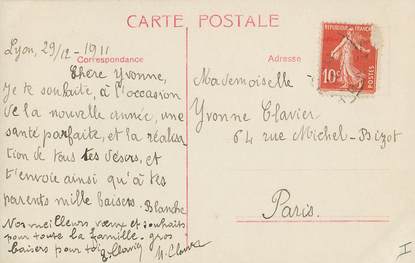 CARTE POSTALE
Lyon, 29/12 - 1911
Correspondance
Adresse
Chère Yvonne,
Je te souhaite, à l'occasion
de la nouvelle année, une
santé parfaite, et la réalisa
tion de tous tes désirs, et
t'envoie ainsi qu'à tes
parents mille baisers. Blanche
Nos meilleurs vœux et souhaits
pour toute la famille. gros
baisers pour toi
Mademoiselle
Yvonne Clavier
64 rue Michel-Bizot
Paris.
REPUBLIQUE FRANÇAISE
10c
POSTES
I